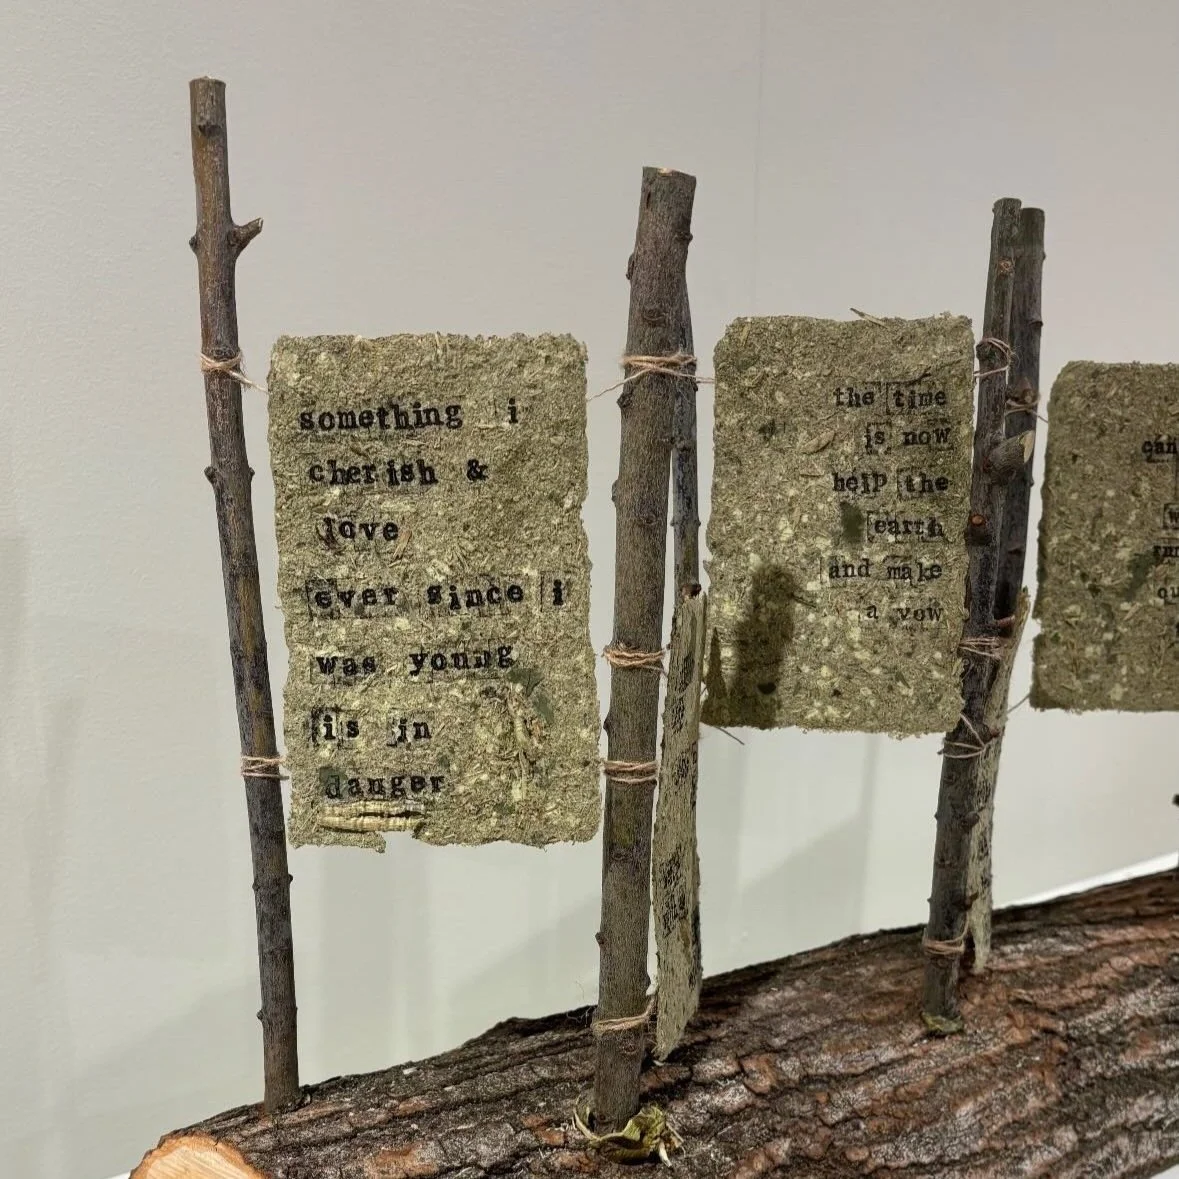 something i
cherish &
love
ever since i
was young
is in
danger
the time
is now
help the
earth
and make
a vow